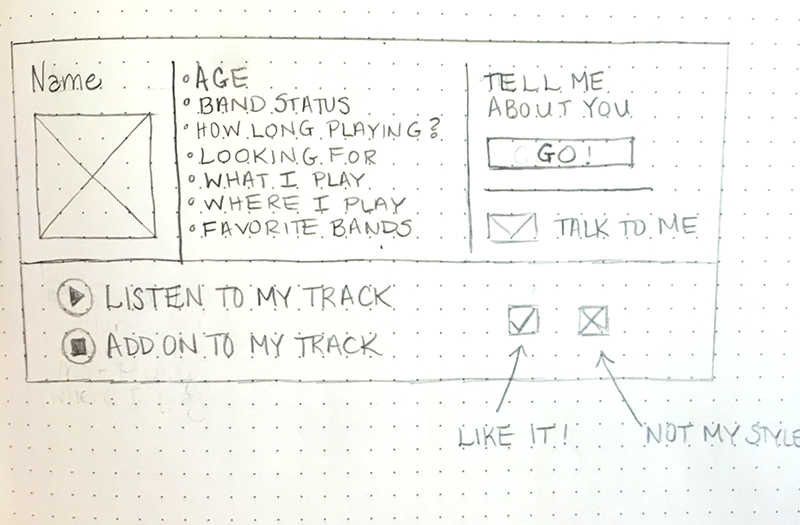 Name
• AGE
• BAND STATUS
• HOW LONG PLAYING?
• LOOKING FOR
• WHAT I PLAY
• WHERE I PLAY
• FAVORITE BANDS
TELL ME
ABOUT YOU
GO!
TALK TO ME
LISTEN TO MY TRACK
ADD ON TO MY TRACK
LIKE IT!
NOT MY STYLE